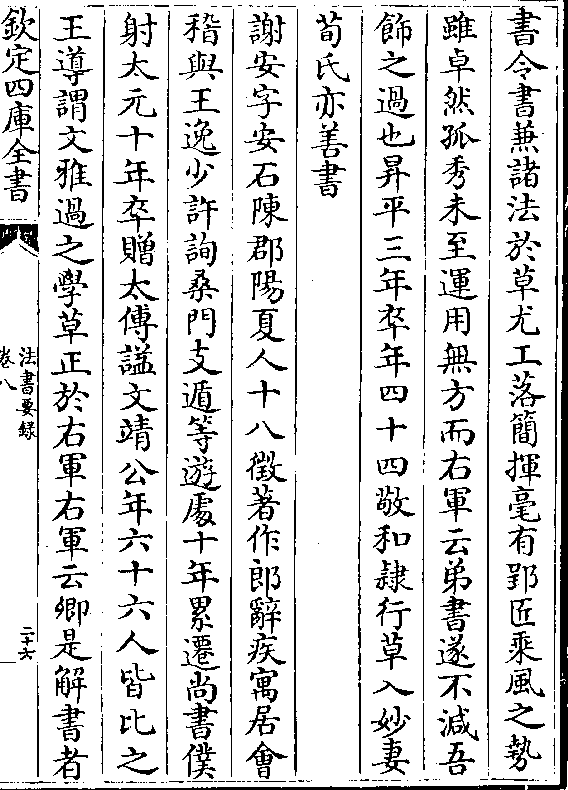 書令書兼諸法於草尤工落簡揮毫有郢匠乘風之勢
雖卓然孤秀未至運用無方而右軍云弟書遂不減吾
飾之過也昇平三年卒年四十四敬和隸行草入妙妻
荀氏亦善書
謝安字安石陳郡陽夏人十八徵著作郎辭疾寓居會
稽與王逸少許詢桑門支遁等遊處十年累遷尚書僕
射太元十年卒贈太傅諡文靖公年六十六人皆比之
王導謂文雅過之學草正於右軍右軍云卿是解書者
欽定四庫全書
法書要錄
卷八
二十六